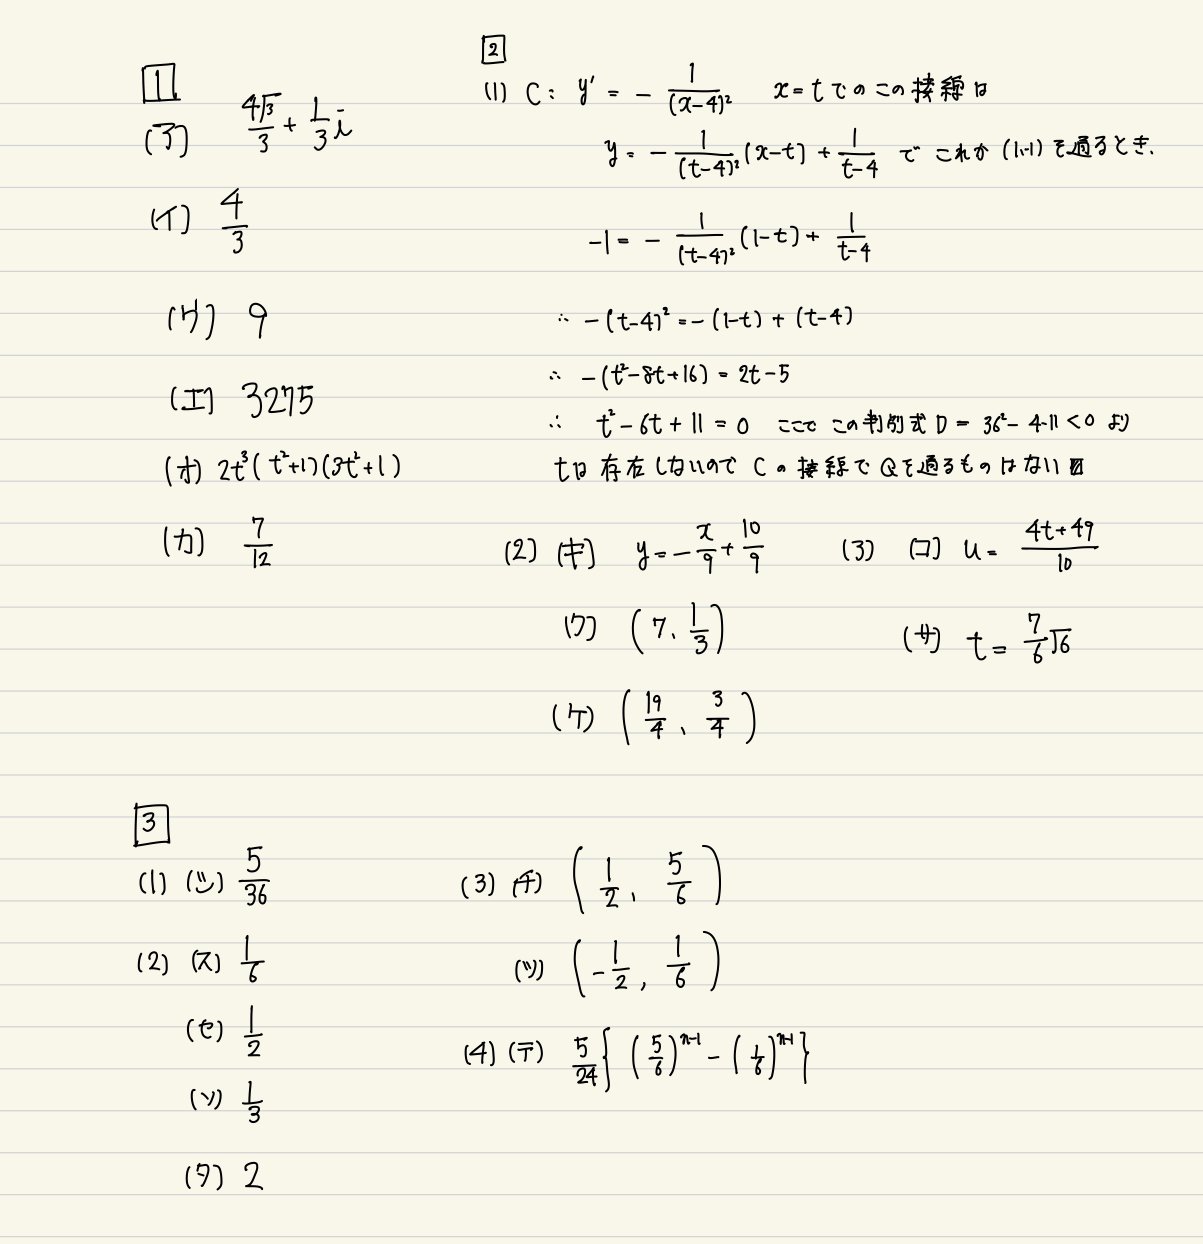 1
(ア) 4√3/3 + 1/3 i
(イ) 4/3
(ウ) 9
(エ) 3275
(オ) 2t³(t²+1)(3t²+1)
(カ) 7/12
2
(1) C: y' = - 1/(x-4)² x=tでのこの接線は
y = - 1/(t-4)² (x-t) + 1/(t-4) で これが (1,-1) を通るとき、
-1 = - 1/(t-4)² (1-t) + 1/(t-4)
∴ -(t-4)² = -(1-t) + (t-4)
∴ -(t²-8t+16) = 2t-5
∴ t²-6t+11 = 0 ここで この判別式 D = 36²-4・11 < 0 より
tは存在しないので Cの接線でQを通るものはない
(2) (キ) y = -x/9 + 10/9
(ク) (7、1/3)
(ケ) (19/4、3/4)
(3) (コ) u = (4t+49)/10
(サ) t = 7/6 √6
3
(1) (シ) 5/36
(2) (ス) 1/6
(セ) 1/2
(ソ) 1/3
(タ) 2
(3) (チ) (1/2, 5/6)
(ツ) (-1/2, 1/6)
(4) (テ) 5/24 { (5/6)ⁿ⁻¹ - (1/6)ⁿ⁻¹ }